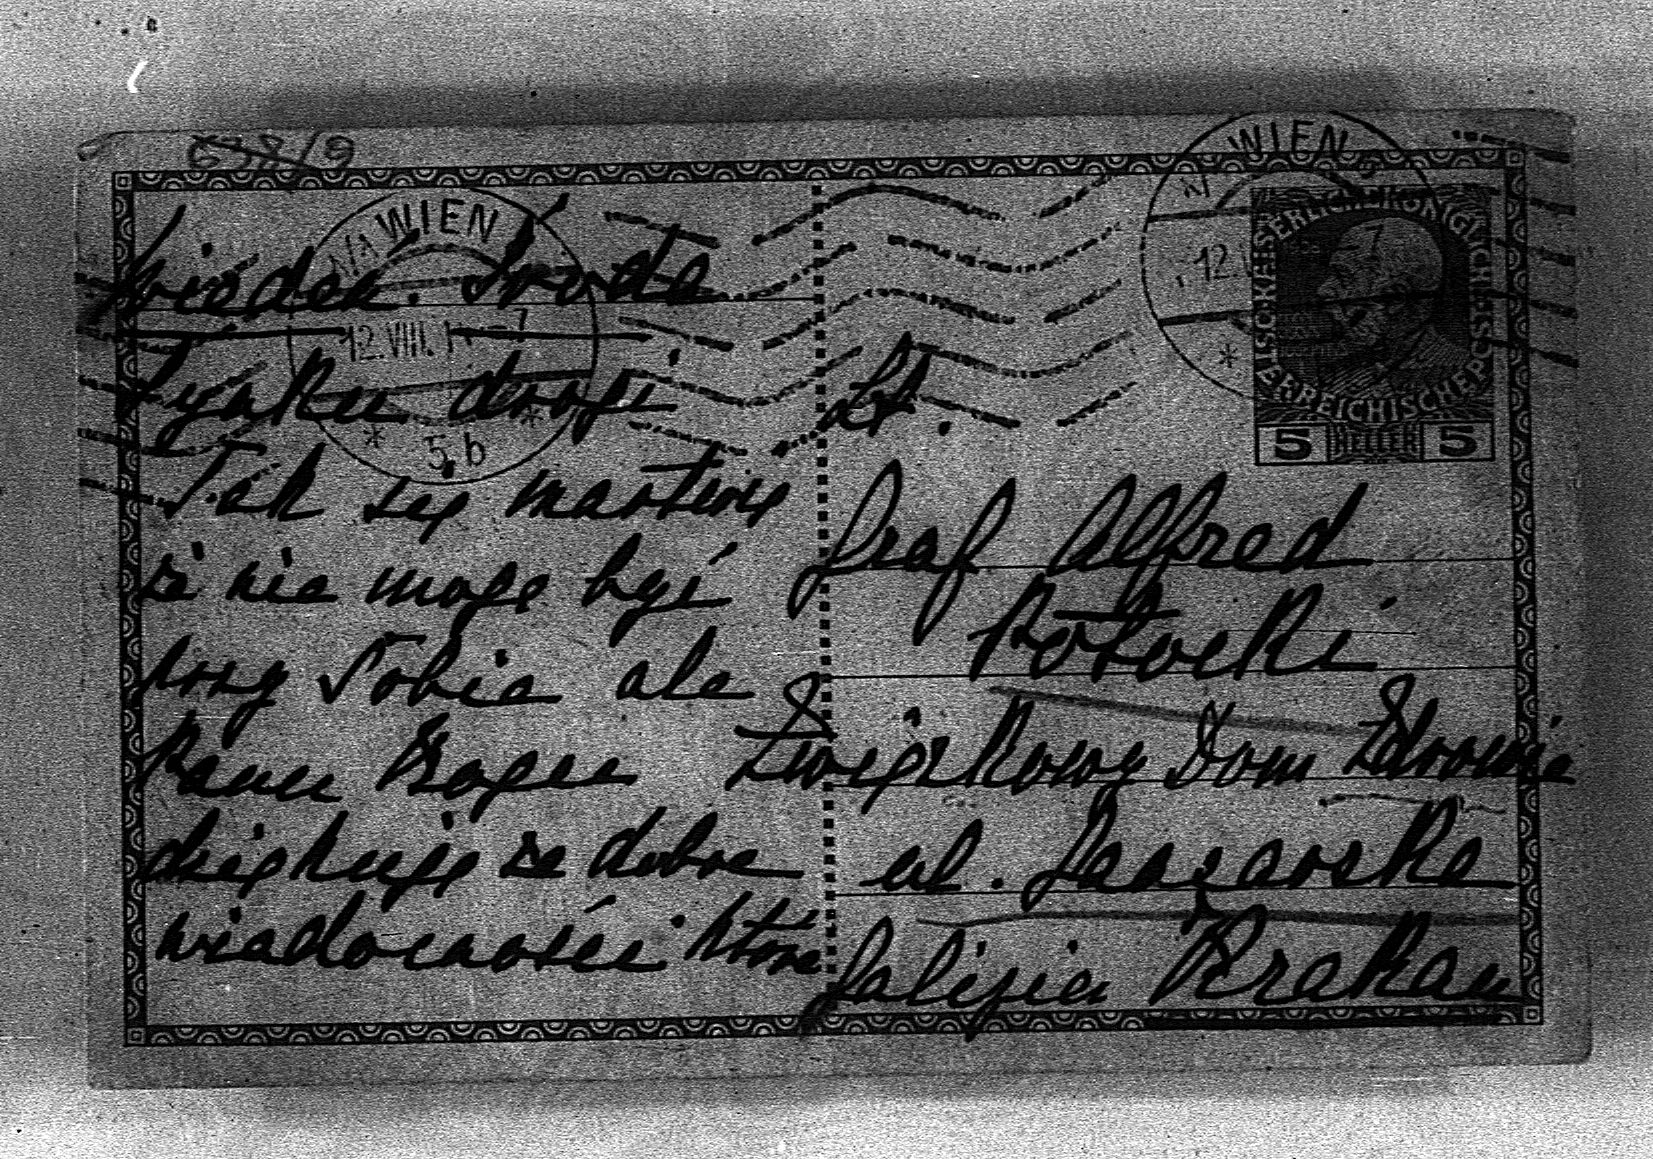 638/9
WIEN
12.VIII.1 -7
5b
WIEN
12.V
KAISERLICHE KÖNIGLICHE ÖSTERREICHISCHE POST
5 HELLER 5
Wiedeń. Środa
Synku drogi
Tak się martwię
że nie mogę być
przy Tobie ale
Panu Bogu
dziękuję za dobre
wiadomości które
Lt.
Graf Alfred
Potocki
Związkowy Dom Zdrowia
ul. Garncarska
Galizien Krakau